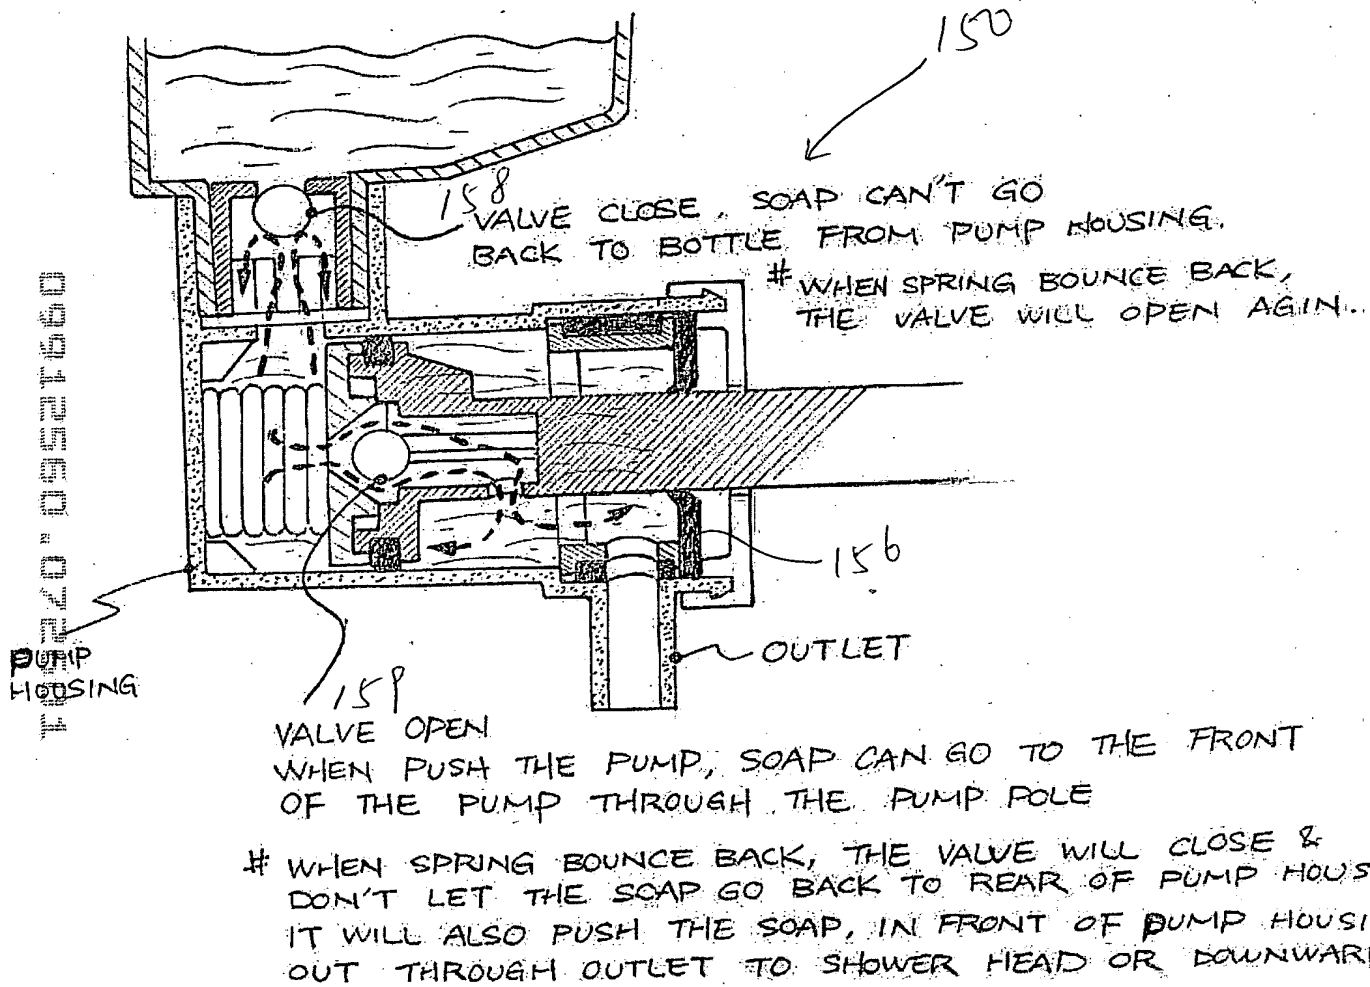 150
158
VALVE CLOSE, SOAP CAN'T GO
BACK TO BOTTLE FROM PUMP HOUSING.
# WHEN SPRING BOUNCE BACK,
THE VALVE WILL OPEN AGIN..
156
OUTLET
PUMP
HOUSING
159
VALVE OPEN
WHEN PUSH THE PUMP, SOAP CAN GO TO THE FRONT
OF THE PUMP THROUGH THE PUMP POLE
# WHEN SPRING BOUNCE BACK, THE VALVE WILL CLOSE &
DON'T LET THE SOAP GO BACK TO REAR OF PUMP HOUS
IT WILL ALSO PUSH THE SOAP, IN FRONT OF PUMP HOUSI
OUT THROUGH OUTLET TO SHOWER HEAD OR DOWNWAR